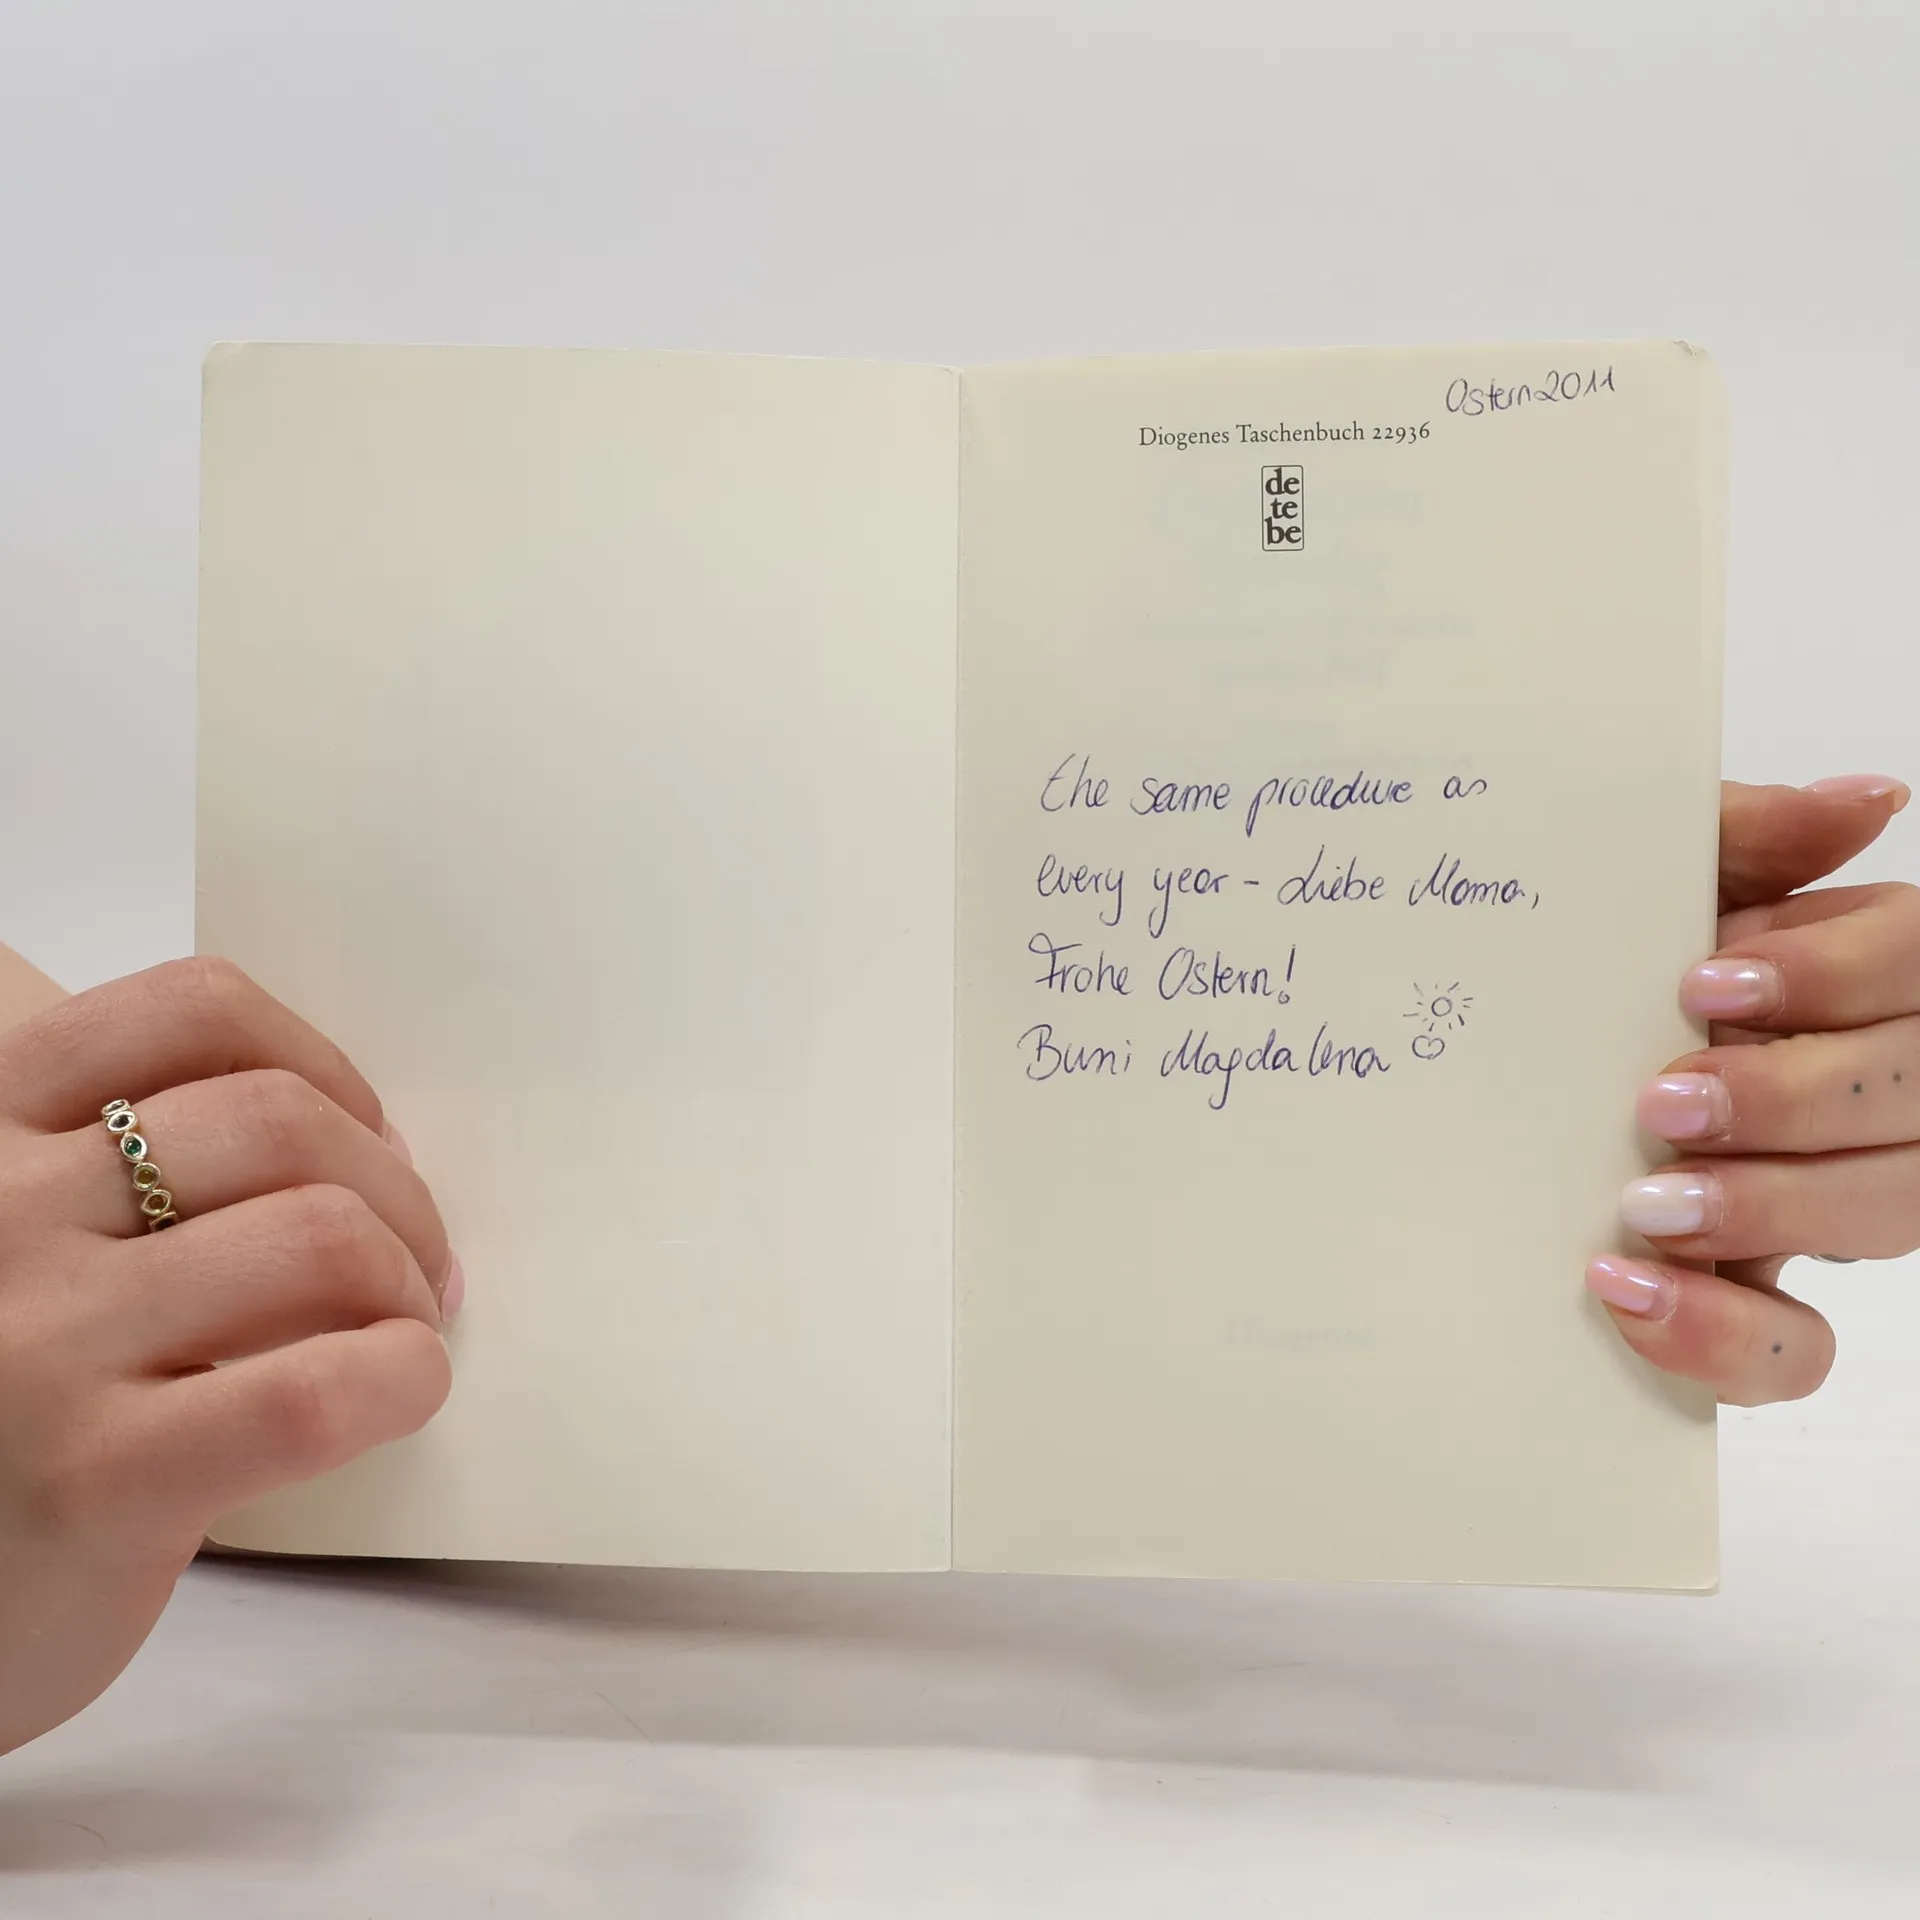 Ostern 2011
Diogenes Taschenbuch 22936
de
te
be
the same procedure as
every year - Liebe Mama,
Frohe Ostern!
Buni Magdalena